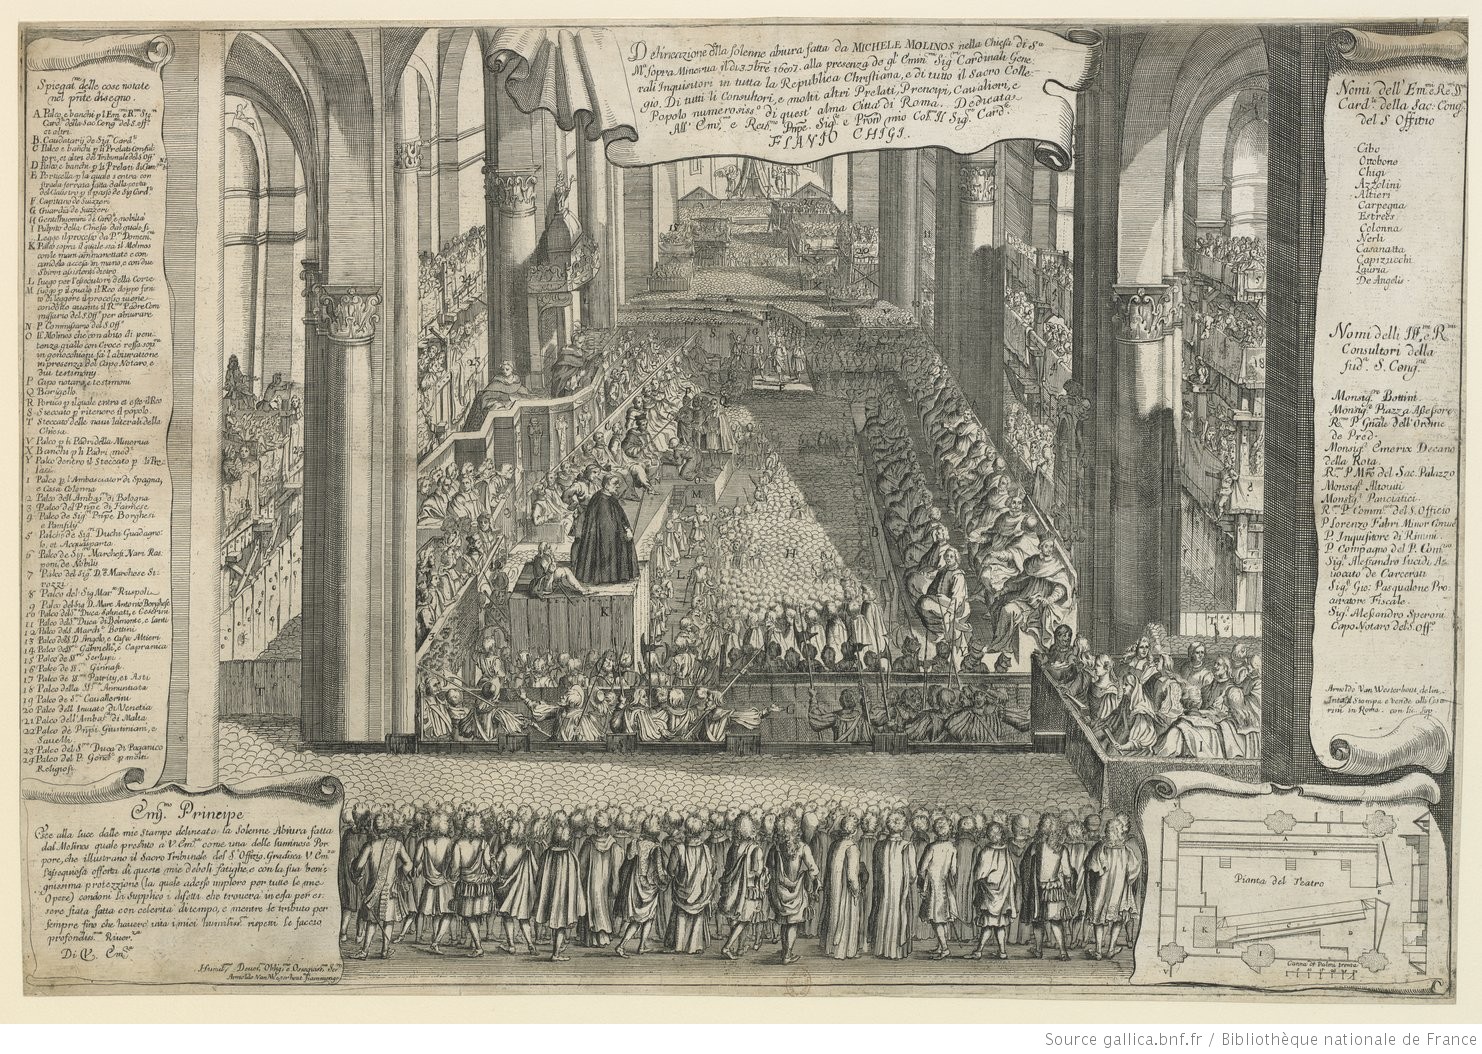 Delineazione della solenne abiura fatta da MICHELE MOLINOS nella Chiesa di S.ª
M.ª sopra Minerua il di 3. 7bre 1687. alla presenza de gl' Emin.mi Sig.ri Cardinali Gene,
rali Inquisitori in tutta la Republica Christiana, e di tutto il Sacro Colle,
gio. Di tutti li Consultori, e molti altri Prelati, Prencipi, Caualieri, e
Popolo numerosiss.º di quest' alma Città di Roma. Dedicata
All' Em.mo e Reu.mo Pnpe Sig.re e Pron mio Col. Il Sig.r Card.
FLAVIO CHIGI.
Spiegat.e delle cose notate
nel pnte disegno.
A. Palco, e banchi p l'Em.mi e R.mi Sig.ri
Card.li della Sac. Cong.ne del S. Off.º
et altri.
B. Caudatarij de Sig.ri Card.li
C Palco e banchi p li Prelati Consul
tori, et altri del Tribunale del S. Off.º
D Palco e banchi p li Prelati
E Porticella p la quale s'entra con
strada serrata fatta dalla porta
del Claustro p il passo de Sig. Card.li
F Capitano de Suizzeri
G Guardia de Suizzeri
H Gentilhuomini de Card.li e nobiltà
I Pulpito della Chiesa dal quale si
Legge il processo da P.ri Domeni.ni
K Palco sopra il quale stà il Molinos
con le mani ammanettate e con
candela accesa in mano, e con due
Sbirri assistenti dietro
L Luogo per l'esecutori della Corte
M Luogo p il quale il Reo doppo fini
to di leggere il processo uiene
condotto auanti il R.mo Padre Com
missario del S. Off.º per abiurare
N P. Commissario del S. Off.º
O Il Molinos che con abito di peni
tenza giallo con Croce rossa sop.ª
in genocchioni fà l'abiuratione
in presenza del Capo Notaro, e
dui testimonij
P Capo notaro, e testimoni
Q Barigello
R Portico p il quale entra et esce il Reo
S Steccato p ritenere il popolo.
T Steccato delle naui laterali della
Chiesa.
V Palco p li Padri della Minerua
X Banchi p li Padri med.mi
Y Palco dentro il Steccato p li Re-
lasi
1 Palco p l'Ambasciator di Spagna,
e Casa Colonna
2 Palco dell' Ambas.re di Bologna
3 Palco del Prñpe di Farnese
4 Palco de Sig.ri Prñpe Borghesi
e Pamfilij
5 Palcho de Sig.ri Duchi Guadagno-
lo, et Acquasparta.
6 Palco de Sig.ri Marchesi Nari Ras-
poni, de Nobili
7 Palco del Sig.r D. e Marchese St-
rozzi
8 Palco del Sig Mar.se Ruspoli
9 Palco del Sig D. Marc Antonio Borghese
10 Palco dell Duca Saluiati, e Cesarini
11 Palco dell Duca di Belmonte, e Lanti
12 Palco dell March.e Bottini
13 Palco dell D. Angelo, e Casa Altieri
14 Palco dell Gabrielli, e Capranica
15 Palco de Serlupi
16 Palco de Ginnasi
17 Palco de Patritij, et Asti
18 Palco della SS.ma Annuntiata
19 Palco de Cauallerini
20 Palco dell' Inuiato di Venetia
21 Palco dell' Ambas.re di Malta
22 Palco de Prñpi Giustiniani, e
Sauelli.
23 Palco del Duca di Paganico
24 Palco del P. Genle p molti
Religiosi.
Nomi dell' Em.mi e Re.mi SS.ri
Card.li della Sac. Cong.ne
del S Offitio
Cibo
Ottobono
Chigi
Azzolini
Altieri
Carpegna
Estrees
Colonna
Nerli
Casanatta
Capizucchi
Lauria
De Angelis
Nomi delli Ill.mi e R.mi
Consultori della
sud.ª S. Cong.ne
Monsig.re Bottini
Monsig.r Piazza Assessore
R.mo P Gnale dell' Ordine
de Pred.
Monsig.r Emerix Decano
della Rota.
R.mo P. Mro del Sac. Palazzo
Monsig.r Altouiti
Monsig.r Panciatici
R.mo P. Comm.º del S. Officio
P. Lorenzo Fabri Minor Conue
P. Inquisitore di Rimini.
P Compagno del P. Com.rio
Sig.r Alessandro Lucidi A-
uocato de Carcerati
Sig.r Gio: Pasqualone Pro-
curatore Fiscale.
Sig.r Alessandro Speroni
Capo Notaro del S. Off.º
Arnoldo Van Westerhout delin.
Intagl Stampa e uende alli Cesa-
rini in Roma. con lic. Sup.
Em.mo Principe
Esce alla luce dalle mie stampe delineata la solenne Abiura fatta
dal Molinos quale presento a V. Em.za come una delle luminose Por
pore, che illustrano il Sacro Tribunale del S.to Offizio. Gradisca V. Em.za
l'ossequiosa offerta di queste mie deboli fatighe, e con la sua beni-
gnissima protezzione (la quale adesso imploro per tutte le mie
Opere) condoni la Supplico i difetti che trouerà in essa per es-
sere stata fatta con celerità di tempo, e mentre le tributo per
sempre fino che hauerò uita i miei humiliss.mi rispetti le faccio
profondiss.ma Riuer.za
Di V. Em.za
Humil.mo Deuot. Oblig.mo e Ossequios.mo Ser.re
Arnoldo Van Westerhout fiammingo
Pianta del Teatro
Canna di Palmi trenta
Source gallica.bnf.fr / Bibliothèque nationale de France